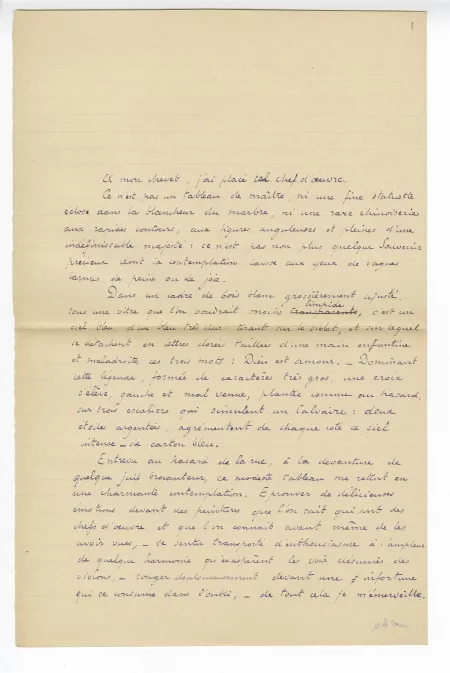 1
A mon chevet, j'ai placé ce chef d'œuvre.
Ce n'est pas un tableau de maître, ni une fine statuette
éclose dans la blancheur du marbre, ni une rare chinoiserie
aux rapides contours, aux figures anguleuses et pleines d'une
indéfinissable majesté : ce n'est pas non plus quelque souvenir
précieux dont la contemplation laisse aux yeux de vagues
larmes de peine ou de joie.
Dans un cadre de bois blanc grossièrement ajusté,
limpide
sous une vitre que l'on voudrait moins transparente, c'est un
ciel bleu, d'un bleu très dur tirant sur le violet, et sur lequel
se détachent en lettres dorées taillées d'une main enfantine
et maladroite ces trois mots : Dieu est amour. _ Dominant
cette légende, formée de caractères très gros, une croix
s'élève, gauche et mal venue, plantée comme au hasard,
sur trois escaliers qui simulent un calvaire : deux
étoiles argentées, agrémentent de chaque côté ce ciel
intense _ de carton bleu.
Entrevu au hasard de la rue, à la devanture de
quelque juif brocanteur, ce modeste tableau me retint en
une charmante contemplation. Éprouver de délicieuses
émotions devant des peintures que l'on sait qui sont des
chefs d'œuvre et que l'on connaît avant même de les
avoir vues, _ se sentir transporté d'enthousiasme à l'ampleur
de quelque harmonie qu'exaspèrent les voix désunies des
violons, _ songer douloureusement devant une infortune
qui se consume dans l'oubli, _ de tout cela je m'émerveille.